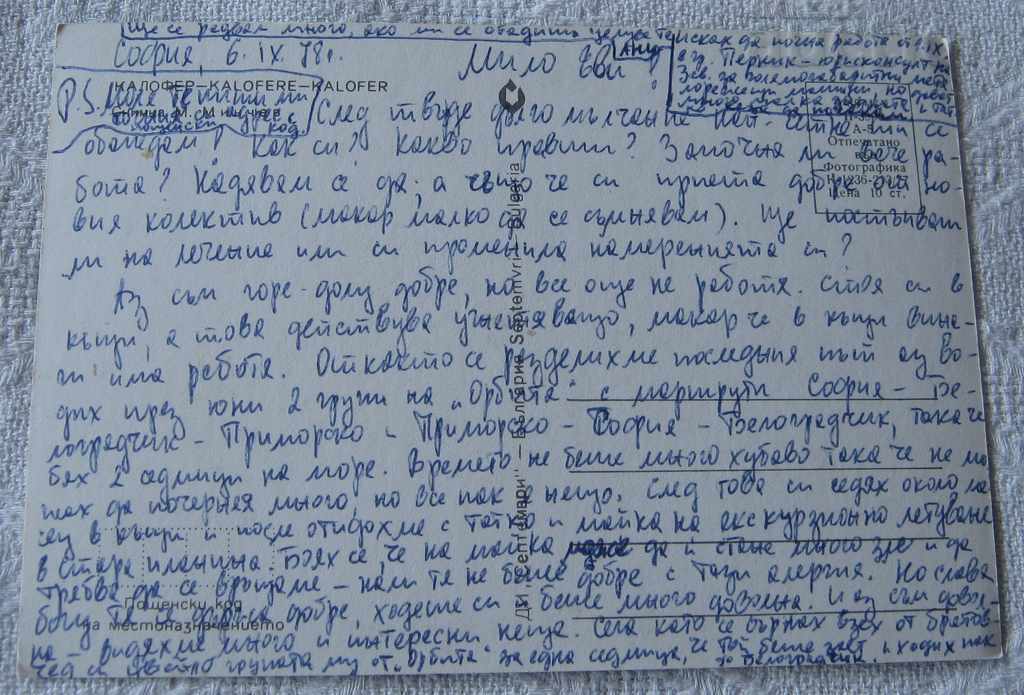 Ще се радвам много, ако ми се обадиш
София, 6.IX.78г.
Мило Еви!
КАЛОФЕР–KALOFERE–KALOFER
P.S. Моля те пиши ми
пощенски код
След твърде дълго мълчание най-сетне ми се
обаждам! Как си? Какво правиш? Започна ли вече ра-
бота? Надявам се да, а също че си приета добре от но-
вия колектив (макар малко да се съмнявам). Ще постъпваш
ли на лечение или си променила намеренията си?
Аз съм горе-долу добре, но все още не работя. Стоя си в
къщи, а това действува
макар че в къщи вина-
ги има работа. Откакто се разделихме последния път аз во-
дих през юни 2 групи на „Орбита" с маршрути София – Бе-
лоградчик – Приморско и Приморско – София – Белоградчик, така че
бях 2 седмици на море. Времето не беше много хубаво така че не мо-
жах да почернея много, но все пак е нещо. След това си седях около ме-
сец в къщи и после отидохме с татко и майка на екскурзионно летуване
в Стара планина. Боях се, че на майка да ѝ стане много зле и да
трябва да се връщаме – нали тя не беше добре с тази алергия. Но слава
богу тя издържа добре, ходеше си и беше много доволна. И аз съм довол-
на – видяхме много и интересни неща. Сега като се върнах взех от братов-
чед си групата му от „Орбита" за една седмица, че той беше зает и ходих пак
до Белоградчик.
Отпечатано
Фотографика
Цена 10 ст.
ДИ „Септември" – България Septemvri – Bulgaria
Пощенски код
на местоназначението